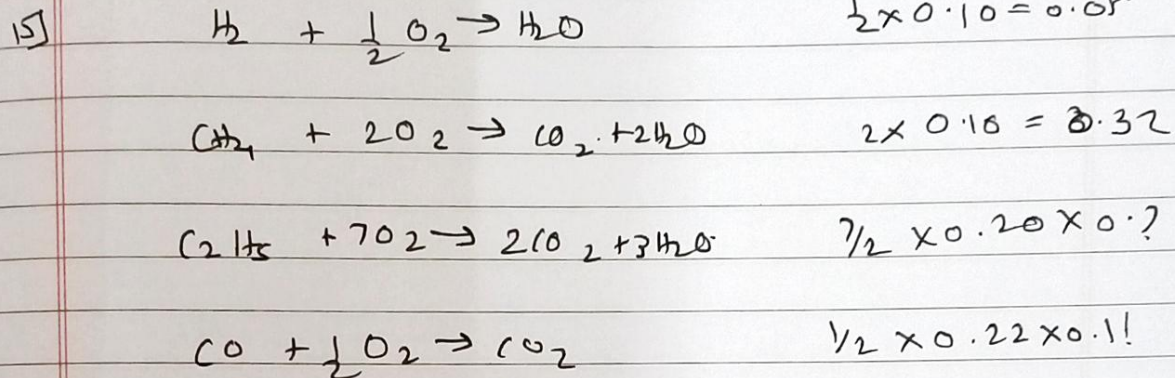 15] H₂ + 1/2 O₂ → H₂O 1/2 × 0.10 = 0.05
CH₄ + 2O₂ → CO₂ + 2H₂O 2 × 0.16 = 0.32
C₂H₅ + 7O₂ → 2CO₂ + 3H₂O 7/2 × 0.20 × 0.7
CO + 1/2 O₂ → CO₂ 1/2 × 0.22 × 0.1!